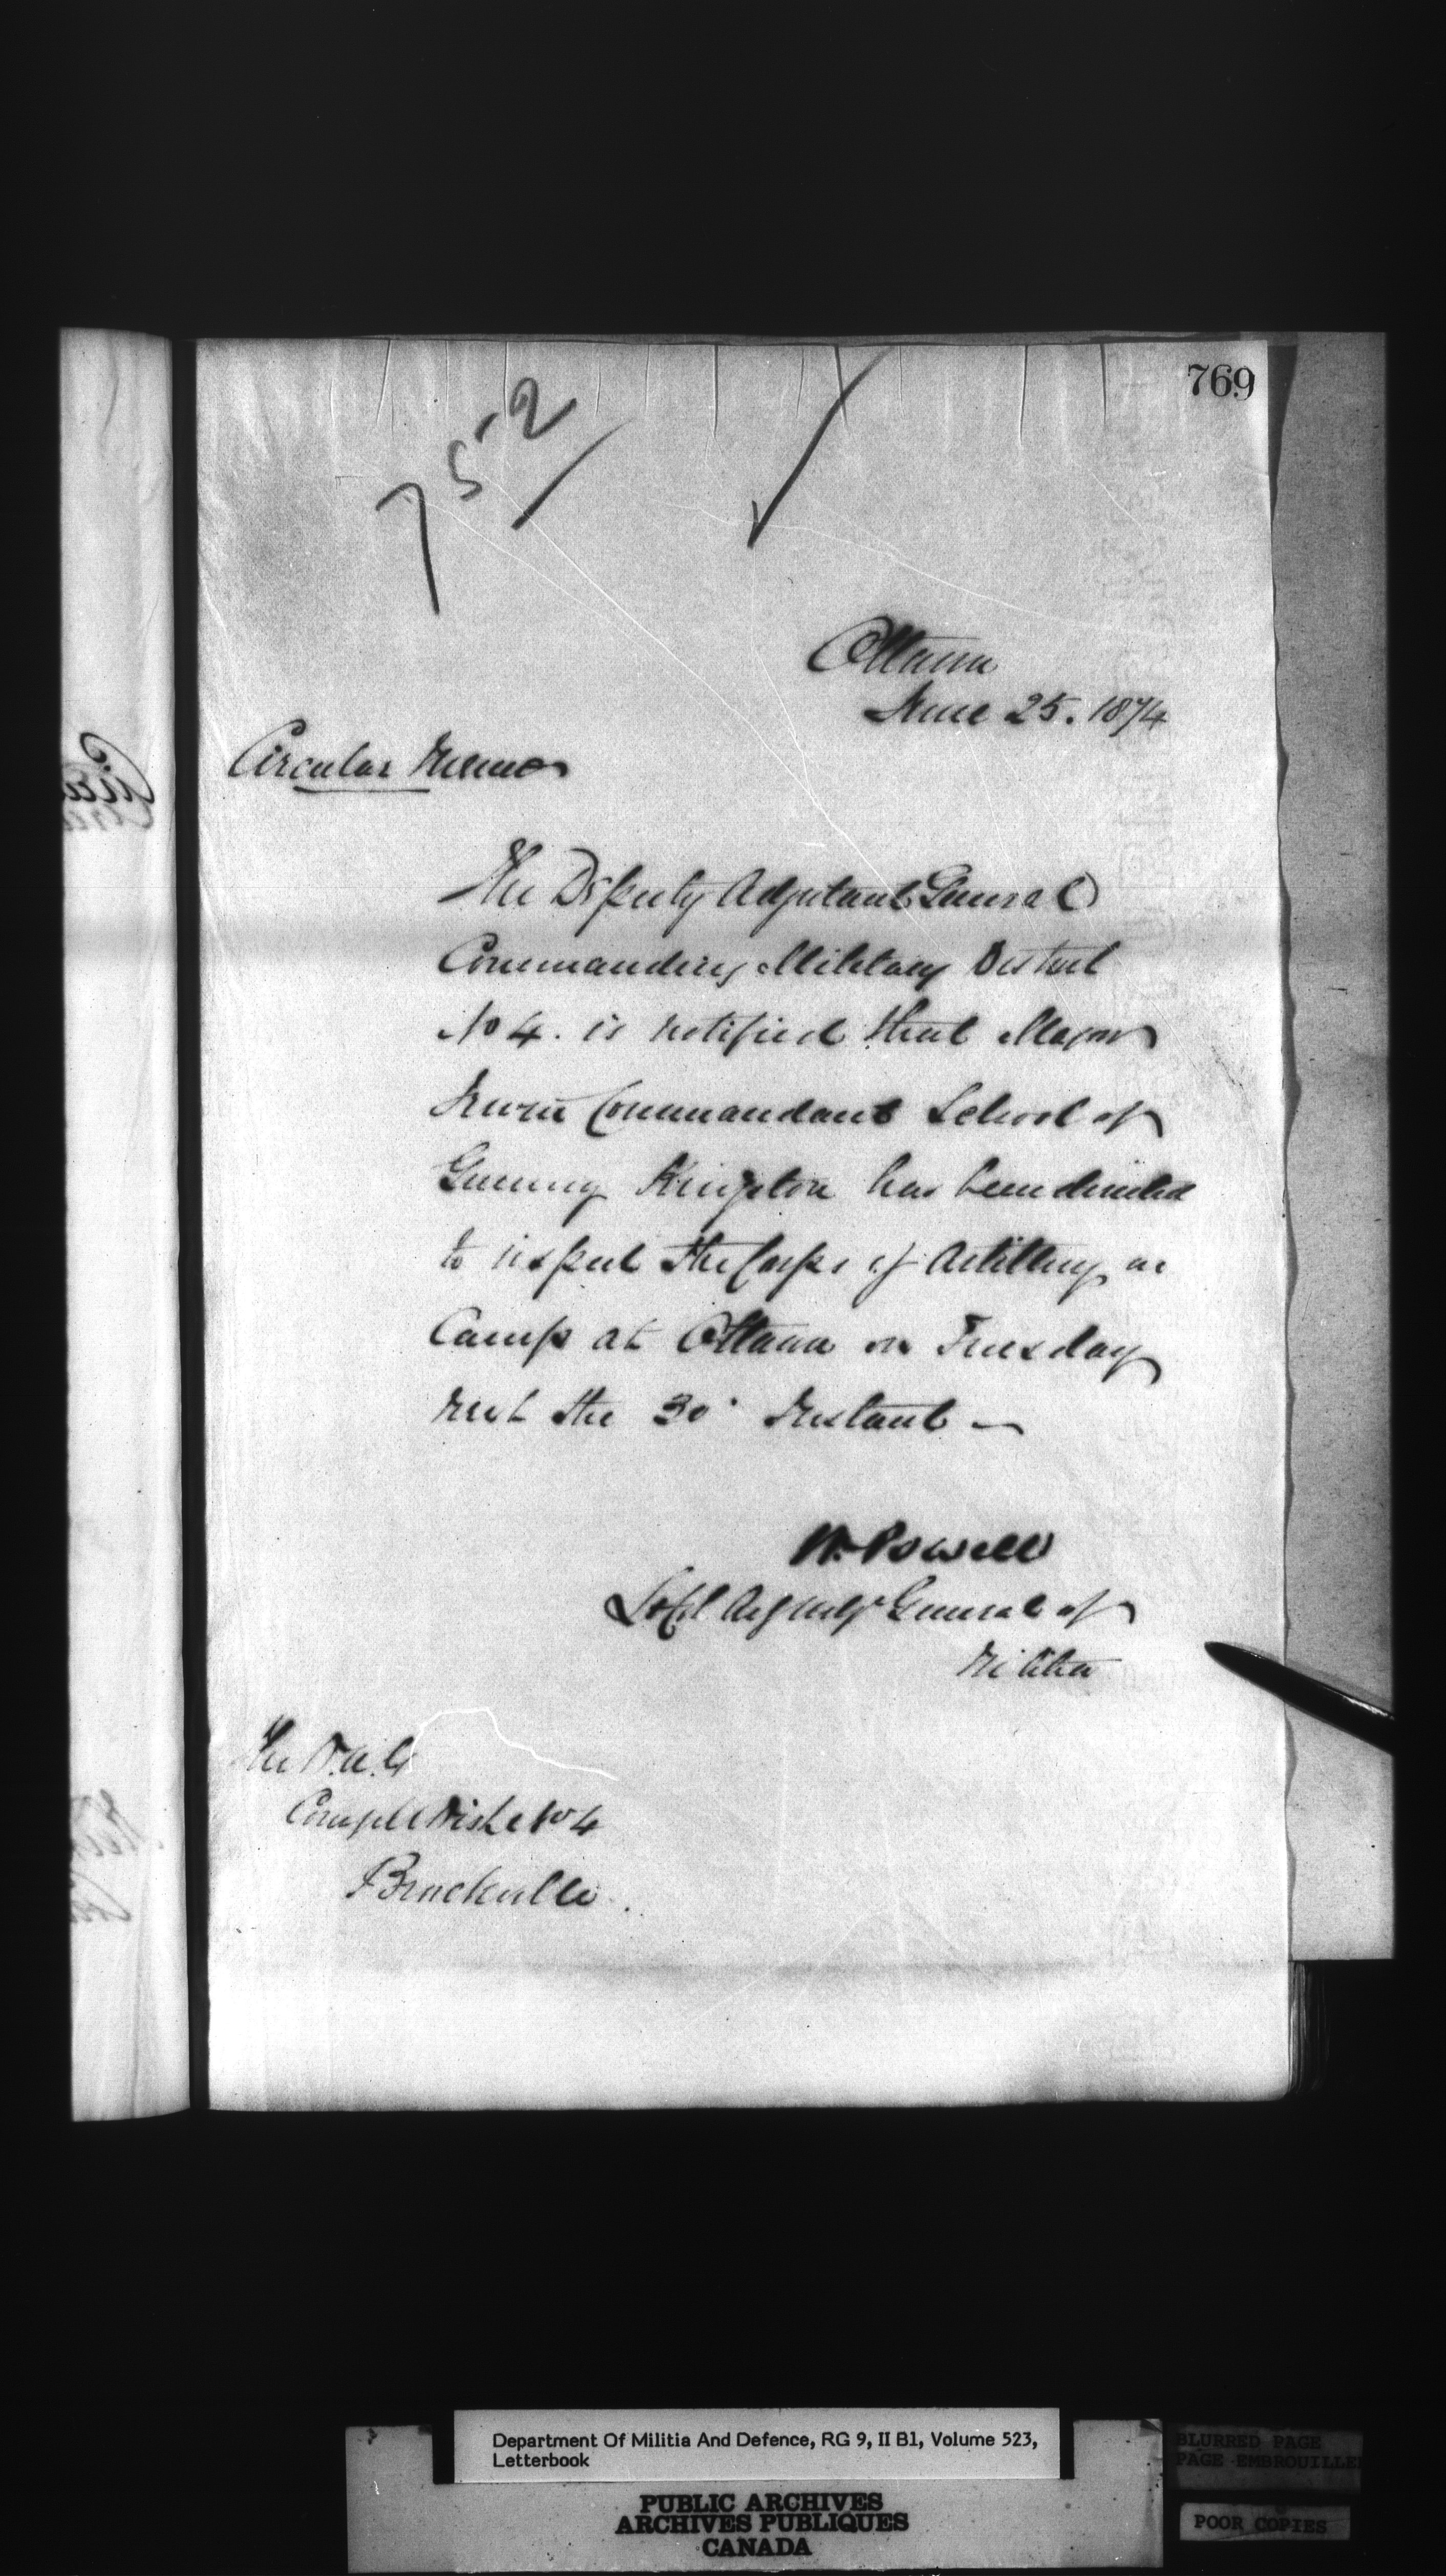 769
752
Ottawa
June 25. 1874
Circular Memo
The Deputy Adjutant General
Commanding Military District
No 4. is notified that Major
Irwin Commandant School of
Gunnery Kingston has been directed
to inspect the Corps of Artillery in
Camp at Ottawa on Tuesday
next the 30 Instant —
W. Powell
Lt Col Adjutant General of
Militia
The D.A.G
Comg Dist No 4
Brockville.
Department Of Militia And Defence, RG 9, II B1, Volume 523,
Letterbook
PUBLIC ARCHIVES
ARCHIVES PUBLIQUES
CANADA
BLURRED PAGE
PAGE EMBROUILLEE
POOR COPIES